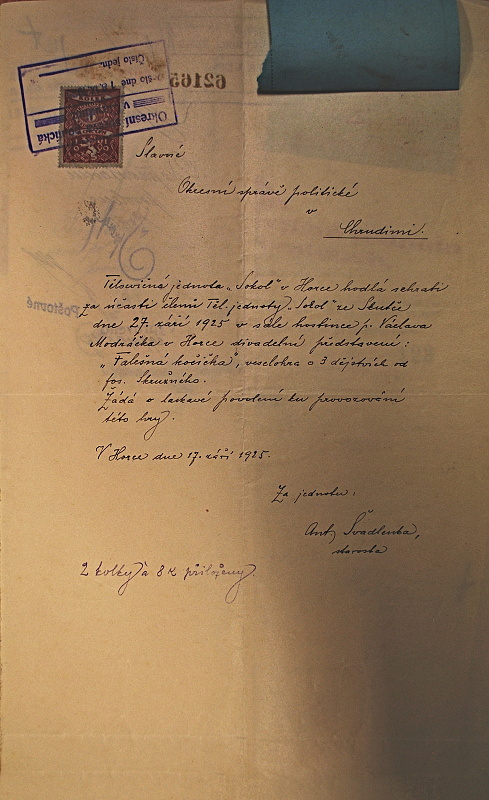 62165
Okresní
v
Číslo jedn.
Slavné
Okresní správě politické
v
Chrudimi.
Tělocvičná jednota „Sokol" v Horce hodlá sehrati
za účasti členů Těl. jednoty „Sokol" ze Skutče
dne 27. září 1925 v sále hostince p. Václava
Modráčka v Horce divadelní představení:
„Falešná kočička", veselohra o 3 dějstvích od
Jos. Skružného.
Žádá o laskavé povolení ku provozování
této hry.
V Horce dne 17. září 1925.
Za jednotu:
Ant. Švadlenka,
starosta
2 kolky à 8 K přiloženy.
Poštovné